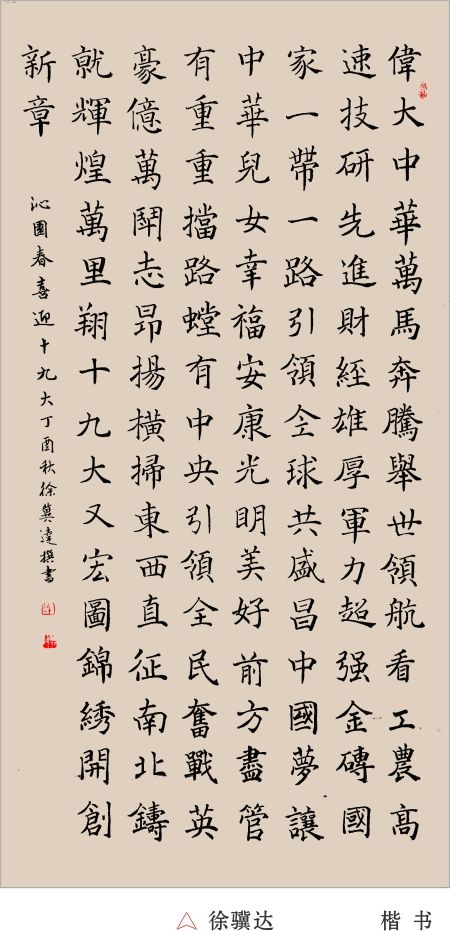 偉大中華萬馬奔騰舉世領航看工農高
速技研先進財經雄厚軍力超强金磚國
家一帶一路引領全球共盛昌中國夢讓
中華兒女幸福安康光明美好前方盡管
有重重擋路螳有中央引領全民奮戰英
豪億萬鬥志昂揚橫掃東西直征南北鑄
就輝煌萬里翔十九大又宏圖錦綉開創
新章
沁園春喜迎十九大丁酉秋徐冀達撰書
徐骥达
楷书